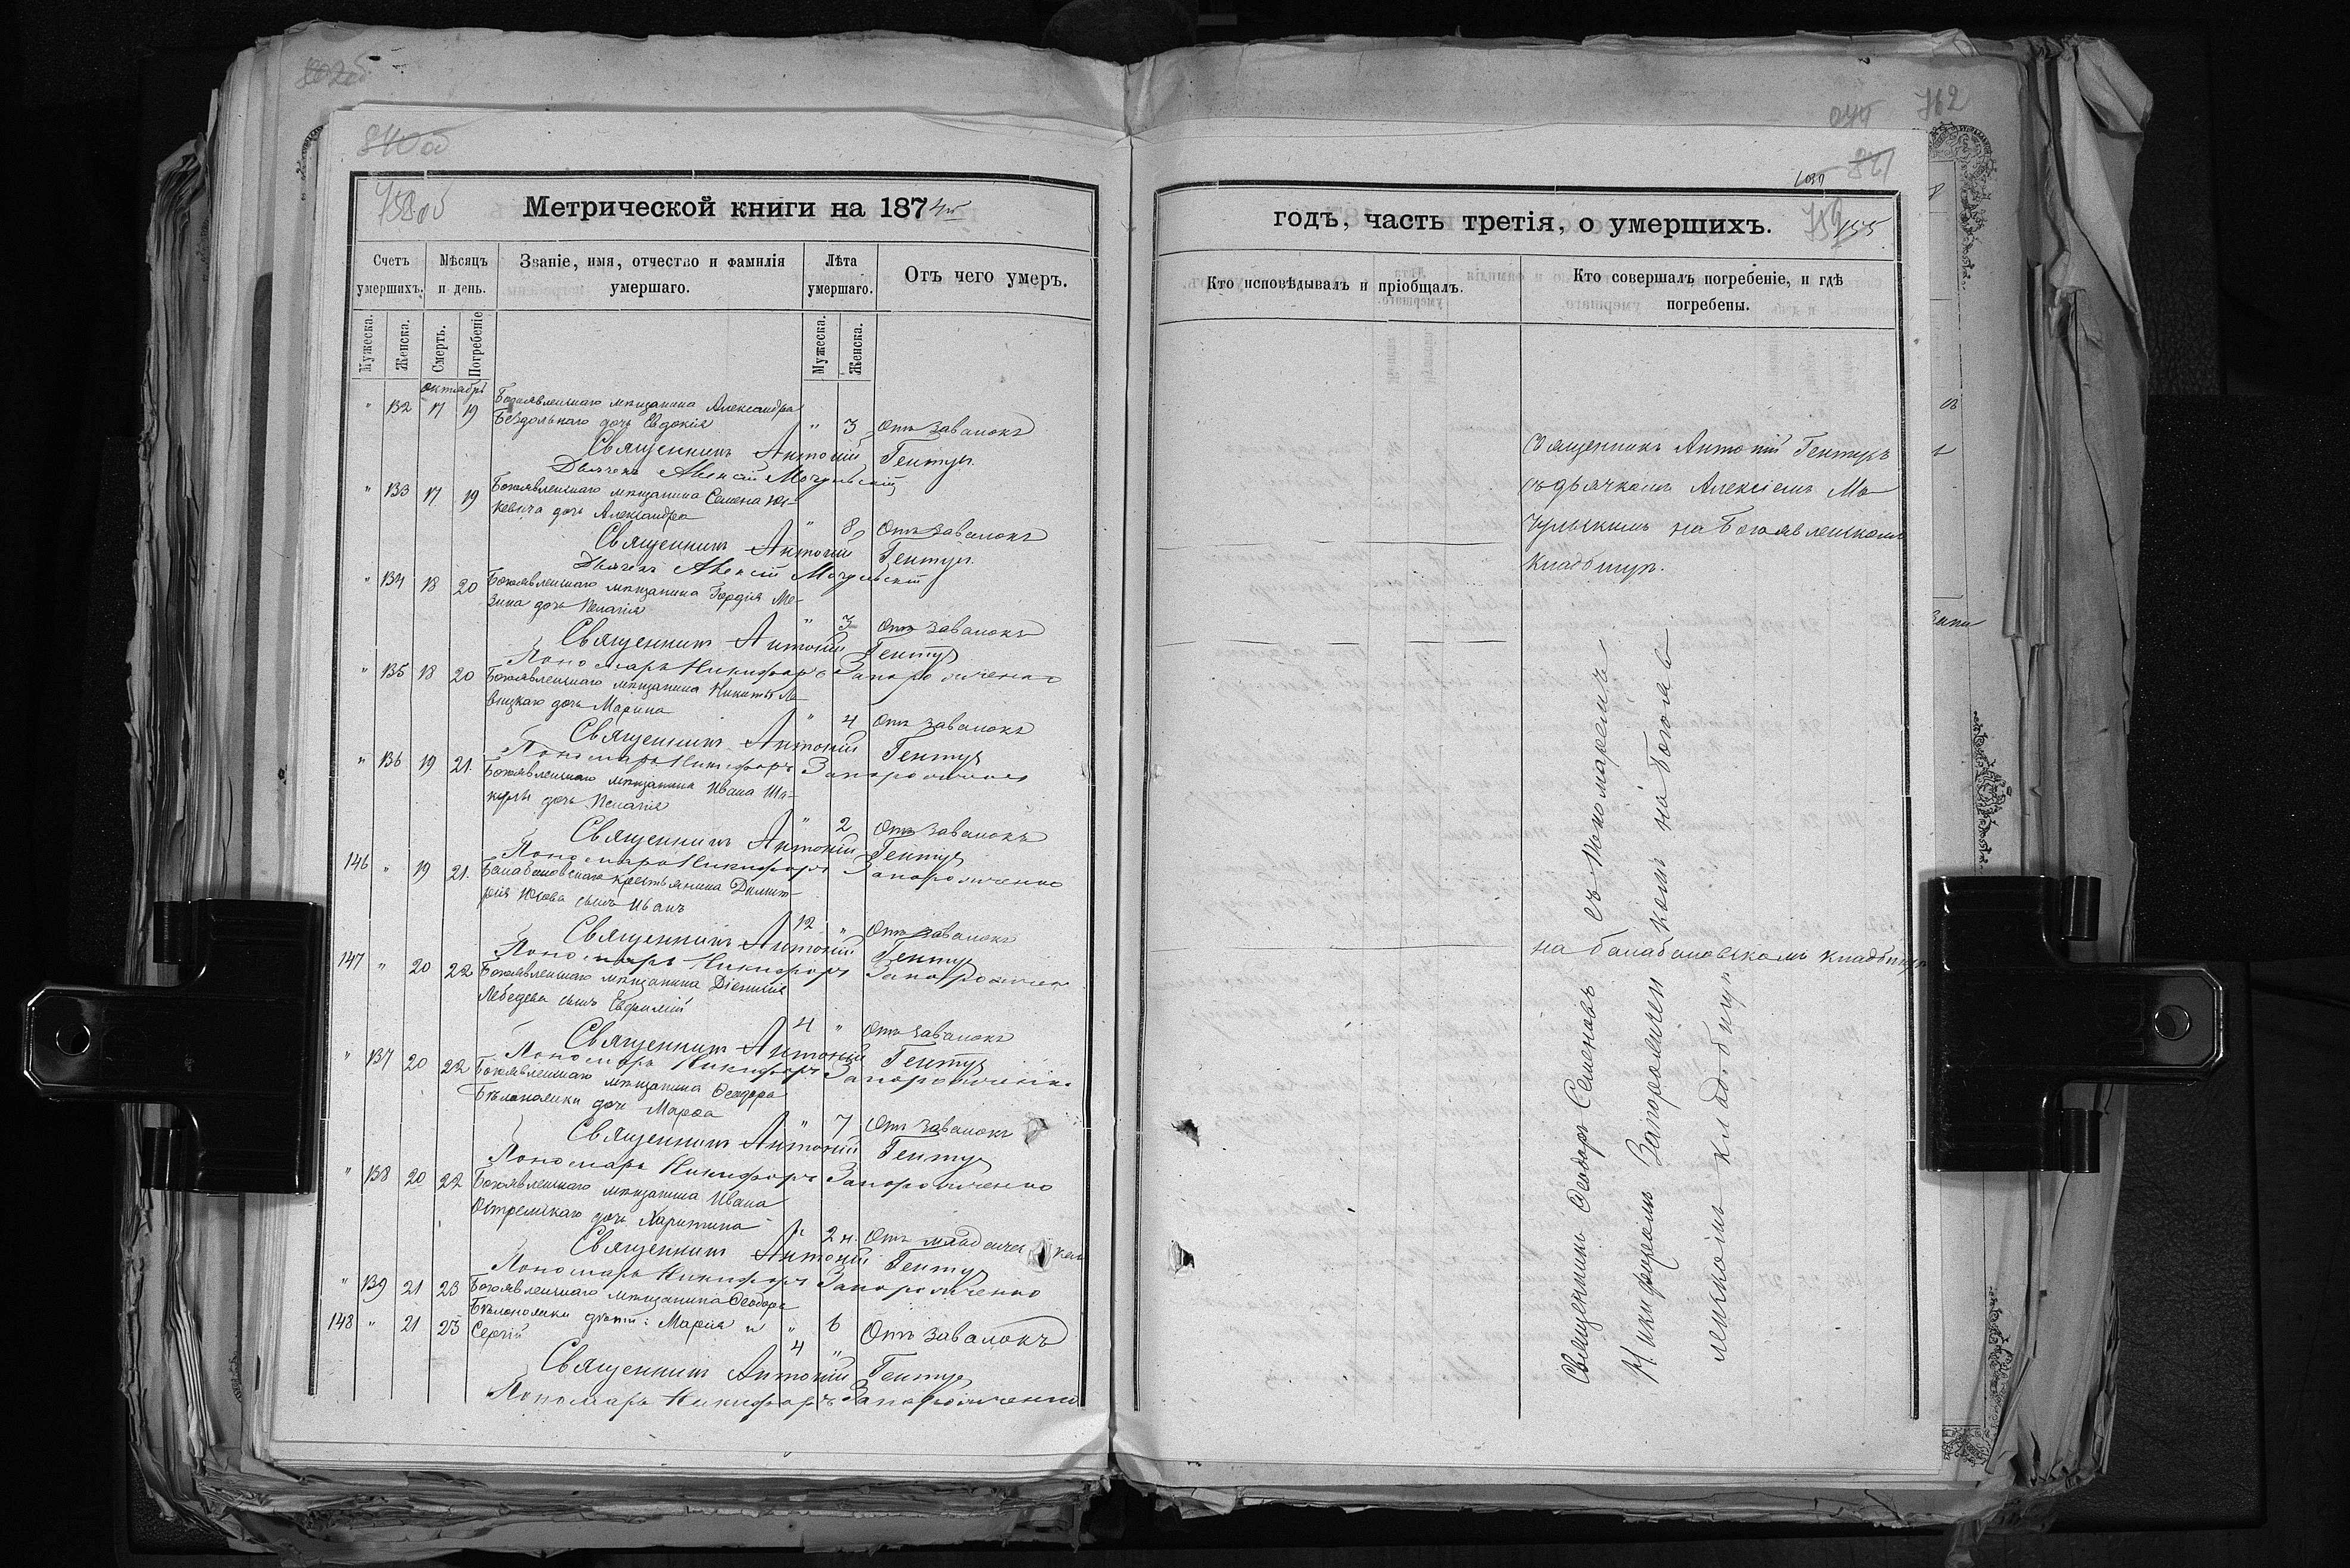 802об
810об
758об
Метрической книги на 1874й
Счетъ умершихъ.
Мѣсяцъ и день.
Званіе, имя, отчество и фамилія умершаго.
Лѣта умершаго.
Отъ чего умеръ.
Мужеска.
Женска.
Смерть.
Погребеніе
Мужеска.
Женска.
октябрь
" 132 17 19 Богоявленскаго мѣщанина Александра
Бездольнаго дочь Евдокія " 3 Отъ завалокъ
Священникъ Антоній Гентуъ
Дьячекъ Алексій Мочульскій
" 133 17 19 Богоявленскаго мѣщанина Семена
кевича дочь Александра " 8 Отъ завалокъ
Священникъ Антоній Гентуъ
Дьячекъ Алексій Мочульскій
" 134 18 20 Богоявленскаго мѣщанина Гордія Ме-
зина дочь Пелагія " 3 Отъ завалокъ
Священникъ Антоній Гентуъ
Пономарь Никифоръ Запорожченко
" 135 18 20 Богоявленскаго мѣщанина Никиты Ле-
вицкаго дочь Марина " 4 Отъ завалокъ
Священникъ Антоній Гентуъ
Пономарь Никифоръ Запорожченко
" 136 19 21. Богоявленскаго мѣщанина Ивана Ша-
дочь Пелагія " 2 Отъ завалокъ
Священникъ Антоній Гентуъ
Пономарь Никифоръ Запорожченко
146 " 19 21. Балабановскаго крестьянина Димит-
рія сынъ Иванъ 12 " Отъ завалокъ
Священникъ Антоній Гентуъ
Пономарь Никифоръ Запорожчен
147 " 20 22 Богоявленскаго мѣщанина Діонисія
Лебедева сынъ Евфимій 4 " Отъ завалокъ
Священникъ Антоній Гентуъ
Пономарь Никифоръ Запорожченко
" 137 20 22 Богоявленскаго мѣщанина Ѳеодора
Бѣлоножки дочь Марѳа " 7 Отъ завалокъ
Священникъ Антоній Гентуъ
Пономарь Никифоръ Запорожченко
" 138 20 22 Богоявленскаго мѣщанина Ивана
дочь Харитина " 2 н. Отъ младенческой
Священникъ Антоній Гентуъ
Пономарь Никифоръ Запорожченко
" 139 21 23 Богоявленскаго мѣщанина Ѳеодора
Бѣлоножки дѣти: Марія и " 6
148 " 21 23 Сергій 4 " Отъ завалокъ
Священникъ Антоній Гентуъ
Пономарь Никифоръ Запорожченко
762
811
155
годъ, часть третія, о умершихъ.
Кто исповѣдывалъ и пріобщалъ.
Кто совершалъ погребеніе, и гдѣ погребены.
Священникъ Антоній Гентуъ
съ дьячкомъ Алексіемъ Мо
чульскимъ на Богоявленскомъ
кладбищѣ.
на балабановскомъ кладбищѣ
Священникъ Ѳеодоръ Семеновъ съ пономаремъ
Никифоромъ Запорожчен комъ на Богояв
ленскомъ кладбищѣ